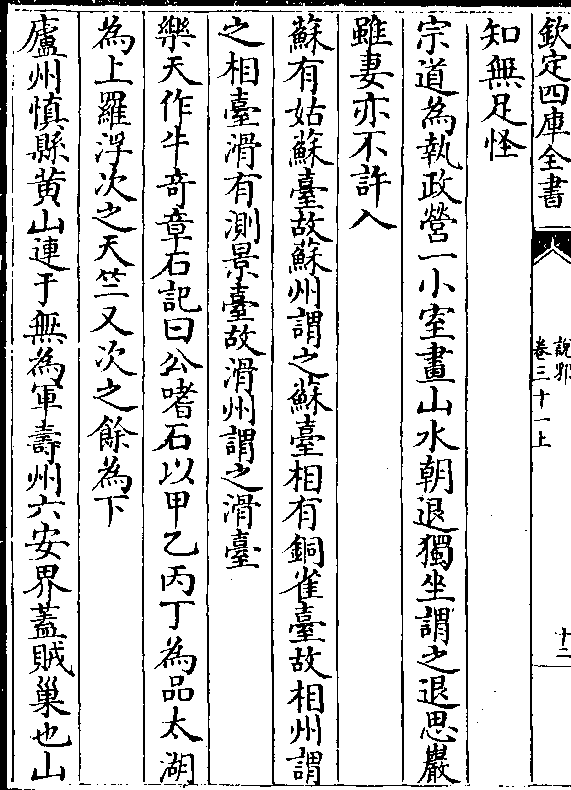 欽定四庫全書
說郛
卷三十一上
十二
知無足怪
宗道為執政營一小室畫山水朝退獨坐謂之退思巖
雖妻亦不許入
蘇有姑蘇臺故蘇州謂之蘇臺相有銅雀臺故相州謂
之相臺滑有測景臺故滑州謂之滑臺
樂天作牛奇章石記曰公嗜石以甲乙丙丁為品太湖
為上羅浮次之天竺又次之餘為下
廬州慎縣黄山連于無為軍壽州六安界蓋賊巢也山